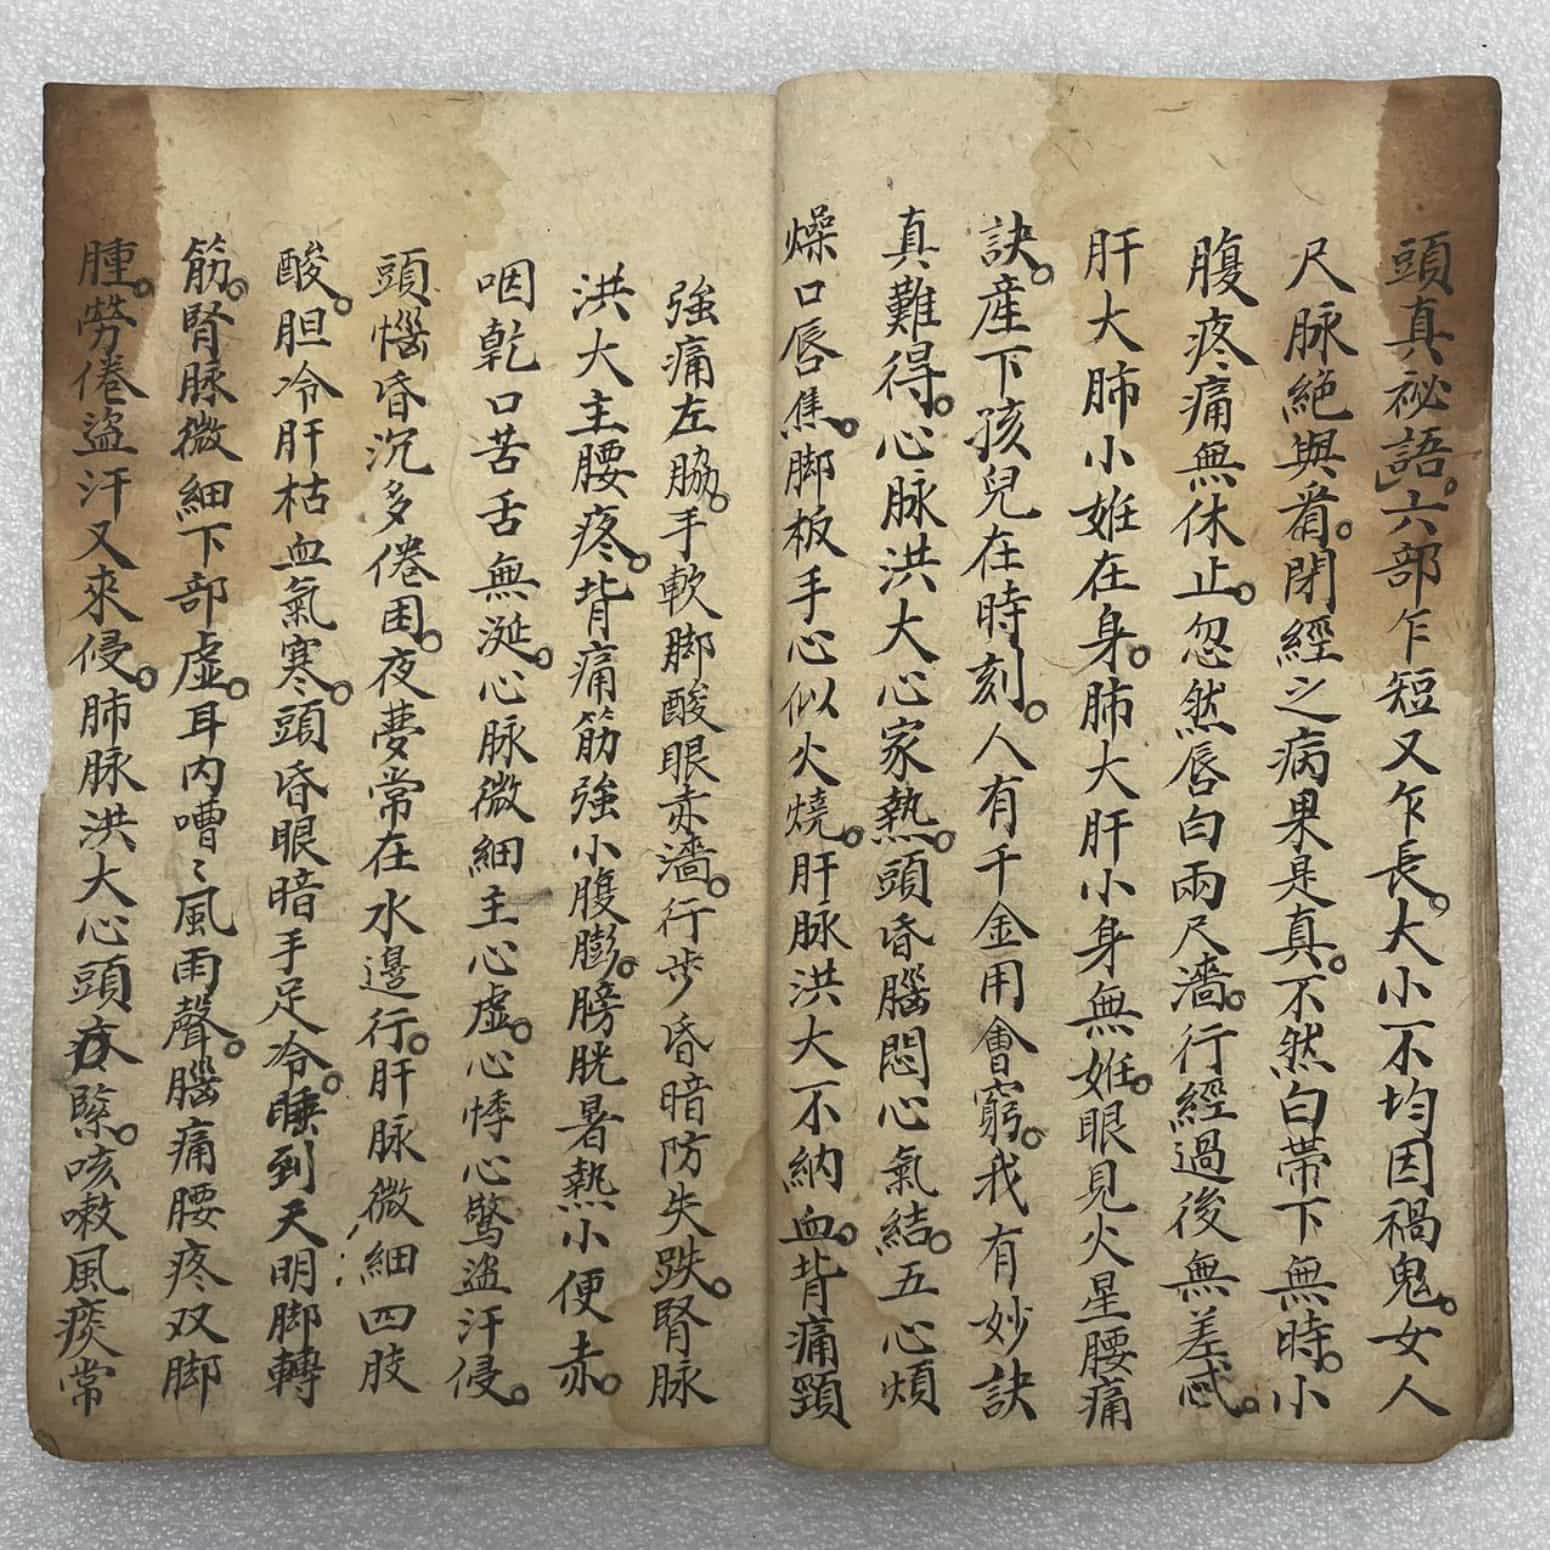 頭真祕語。六部乍短又乍長。大小不均因禍鬼。女人
尺脉絕與看。閉經之病果是真。不然白帶下無時。小
腹疼痛無休止。忽然唇白兩尺濇。行經過後無差忒。
肝大肺小姙在身。肺大肝小身無姙。眼見火星腰痛
訣。產下孩兒在時刻。人有千金用會窮。我有妙訣
真難得。心脉洪大心家熱。頭昏腦悶心氣結。五心煩
燥口唇焦。脚板手心似火燒。肝脉洪大不納血。背痛頸
強痛左脇。手軟脚酸眼赤濇。行步昏暗防失跌。腎脉
洪大主腰疼。背痛筋強小腹膨。膀胱暑熱小便赤。
咽乾口苦舌無涎。心脉微細主心虛。心悸心驚盜汗侵。
頭惱昏沉多倦困。夜夢常在水邊行。肝脉微細四肢
酸。胆冷肝枯血氣寒。頭昏眼暗手足冷。睡到天明脚轉
筋。腎脉微細下部虛。耳内嘈〻風雨聲。腦痛腰疼双脚
腫。勞倦盜汗又來侵。肺脉洪大心頭緊。咳嗽風痰常